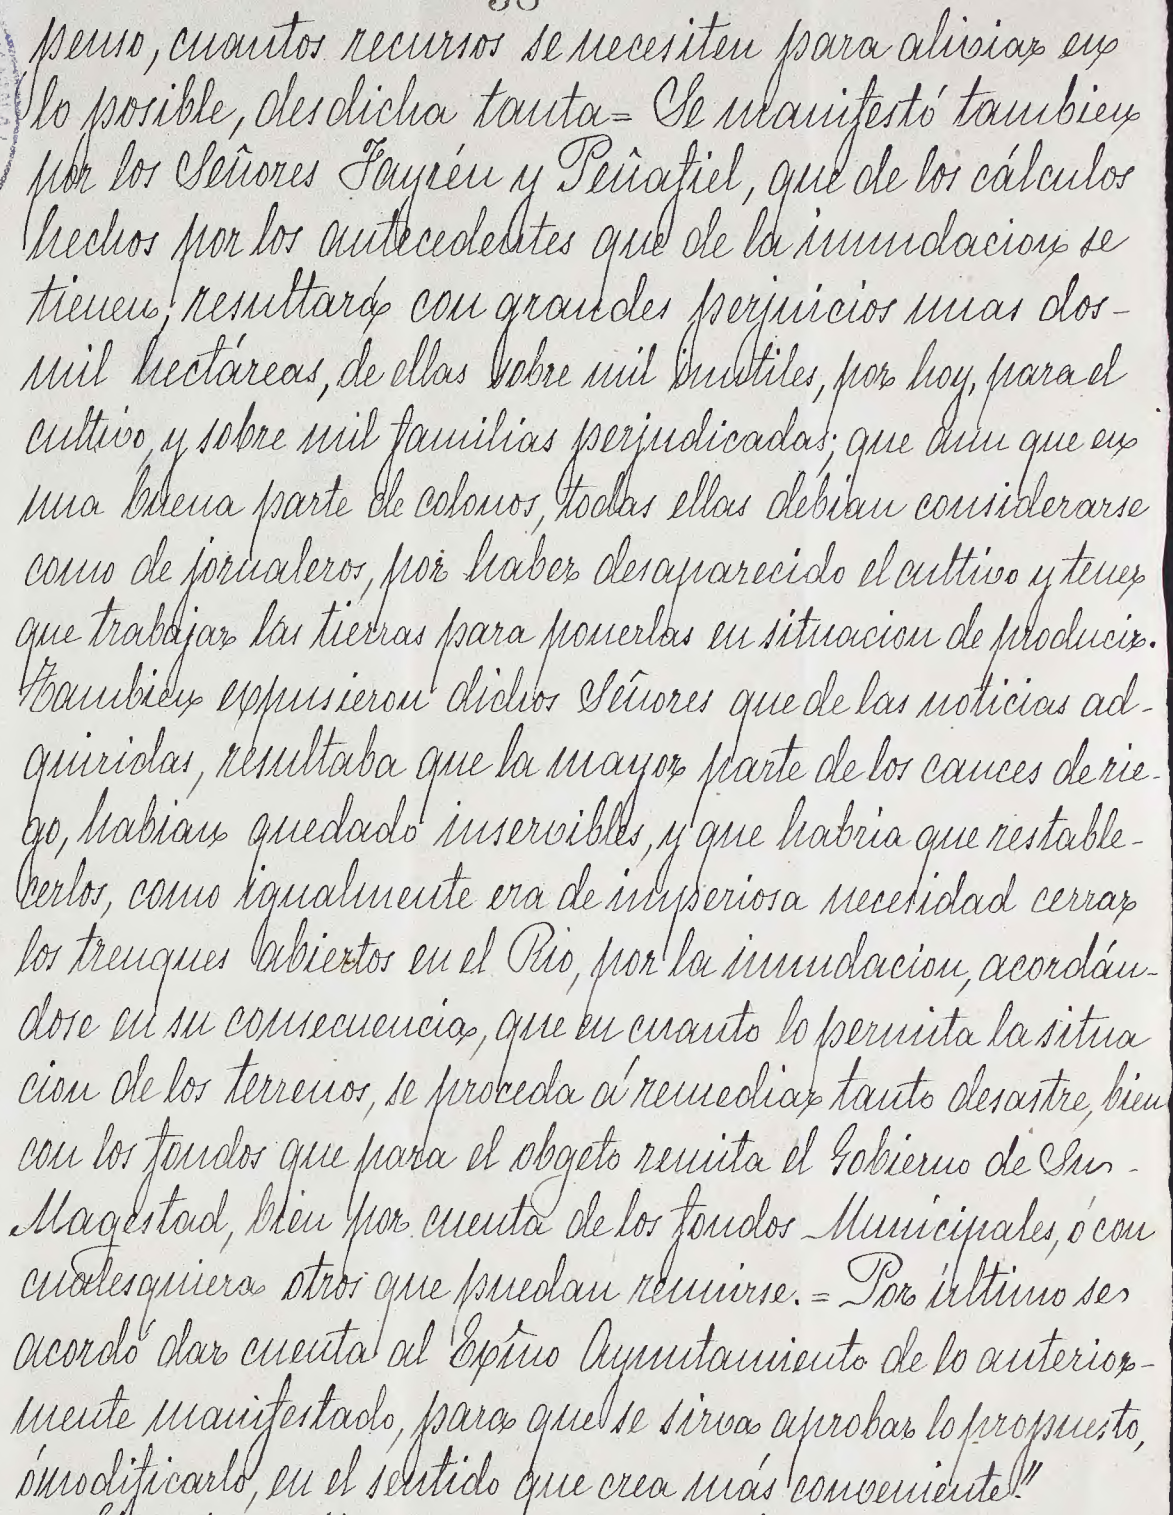 penso, cuantos recursos se necesiten para aliviar en
lo posible, desdicha tanta= Se manifestó tambien
por los Señores Fayrén y Peñafiel, que de los cálculos
hechos por los antecedentes que de la inundacion se
tienen, resultará con grandes perjuicios unas dos-
mil hectáreas, de ellas sobre mil inutiles, por hoy, para el
cultivo, y sobre mil familias perjudicadas; que aun que en
una buena parte de colonos, todas ellas debian considerarse
como de jornaleros, por haber desaparecido el cultivo y tener
que trabajar las tierras para ponerlas en situacion de producir.
Tambien expusieron dichos Señores que de las noticias ad-
quiridas, resultaba que la mayor parte de los cauces de rie-
go, habian quedado inservibles, y que habria que restable-
cerlos, como igualmente era de imperiosa necesidad cerrar
los trenques abiertos en el Rio, por la inundacion, acordán-
dose en su consecuencia, que en cuanto lo permita la situa
cion de los terrenos, se proceda á remediar tanto desastre, bien
con los fondos que para el obgeto remita el Gobierno de Su-
Magestad, bien por cuenta de los fondos Municipales, ó con
cualesquiera otros que puedan reunirse.= Por último se
acordó dar cuenta al Exmo Ayuntamiento de lo anterior-
mente manifestado, para que se sirva aprobar lo propuesto,
ó modificarlo, en el sentido que crea más conveniente!"